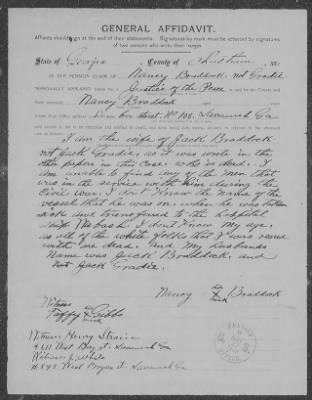 GENERAL AFFIDAVIT.
Affiants should sign at the end of their statements. Signatures by mark must be attested by signatures
of two persons who write their names
State of Georgia County of Chatham, ss:
IN THE PENSION CLAIM OF Nancy Braddock, not Gradic
PERSONALLY APPEARED before me, a Justice of the Peace in and for the County and
Nancy Braddock
Savannah Ga
I am the wife of Jack Braddock
not Jack Gradic, as it was wrote in the
other papers in this case, who is dead. I
am unable to find any of the men that
was in the service with him during the
Civil war. I don't know the name of the
vessel that he was on. when he was taken
sick and transfered to the hospital
ship Wabash. I don't know my age,
as all of the white folks that I was raised
with are dead. and my husbands
name was Jack Braddock, and
not Jack Gradic.
Nancy X Braddock
Witness
Gibbs
Witness Henry
West Bay st. Savannah Ga
Witness J. White
West Bryan st. Savannah Ga